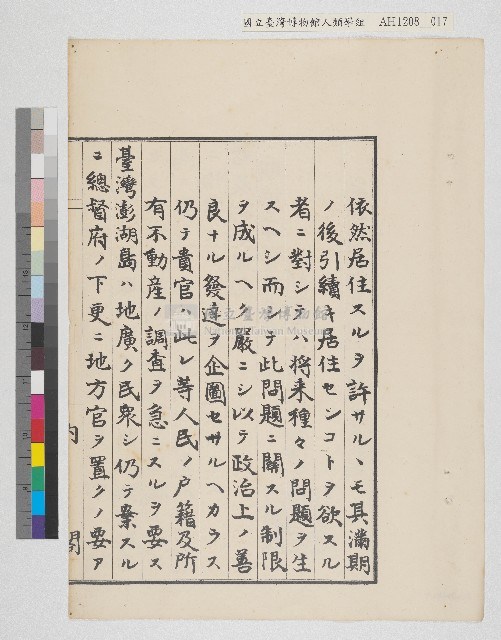 國立臺灣博物館人類學組 AH1208 017
依然居住スルヲ許サルヽモ其滿期
ノ後引續キ居住センコトヲ欲スル
者ニ對シテハ将来種々ノ問題ヲ生
スヘシ而シテ此問題ニ關スル制限
ヲ成ルヘク嚴ニシ以テ政治上ノ善
良ナル發達ヲ企圖セサルヘカラス
仍テ貴官ハ此レ等人民ノ戸籍及所
有不動産ノ調査ヲ急ニスルヲ要ス
臺灣澎湖島ハ地廣ク民衆シ仍テ案スル
ニ總督府ノ下更ニ地方官ヲ置クノ要ア
內閣
國立臺灣博物館
National Taiwan Museum